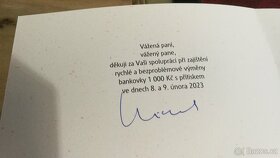 Vážená paní,
vážený pane,
děkuji za Vaši spolupráci při zajištění
rychlé a bezproblémové výměny
bankovky 1 000 Kč s přítiskem
ve dnech 8. a 9. února 2023
Bazoš.cz